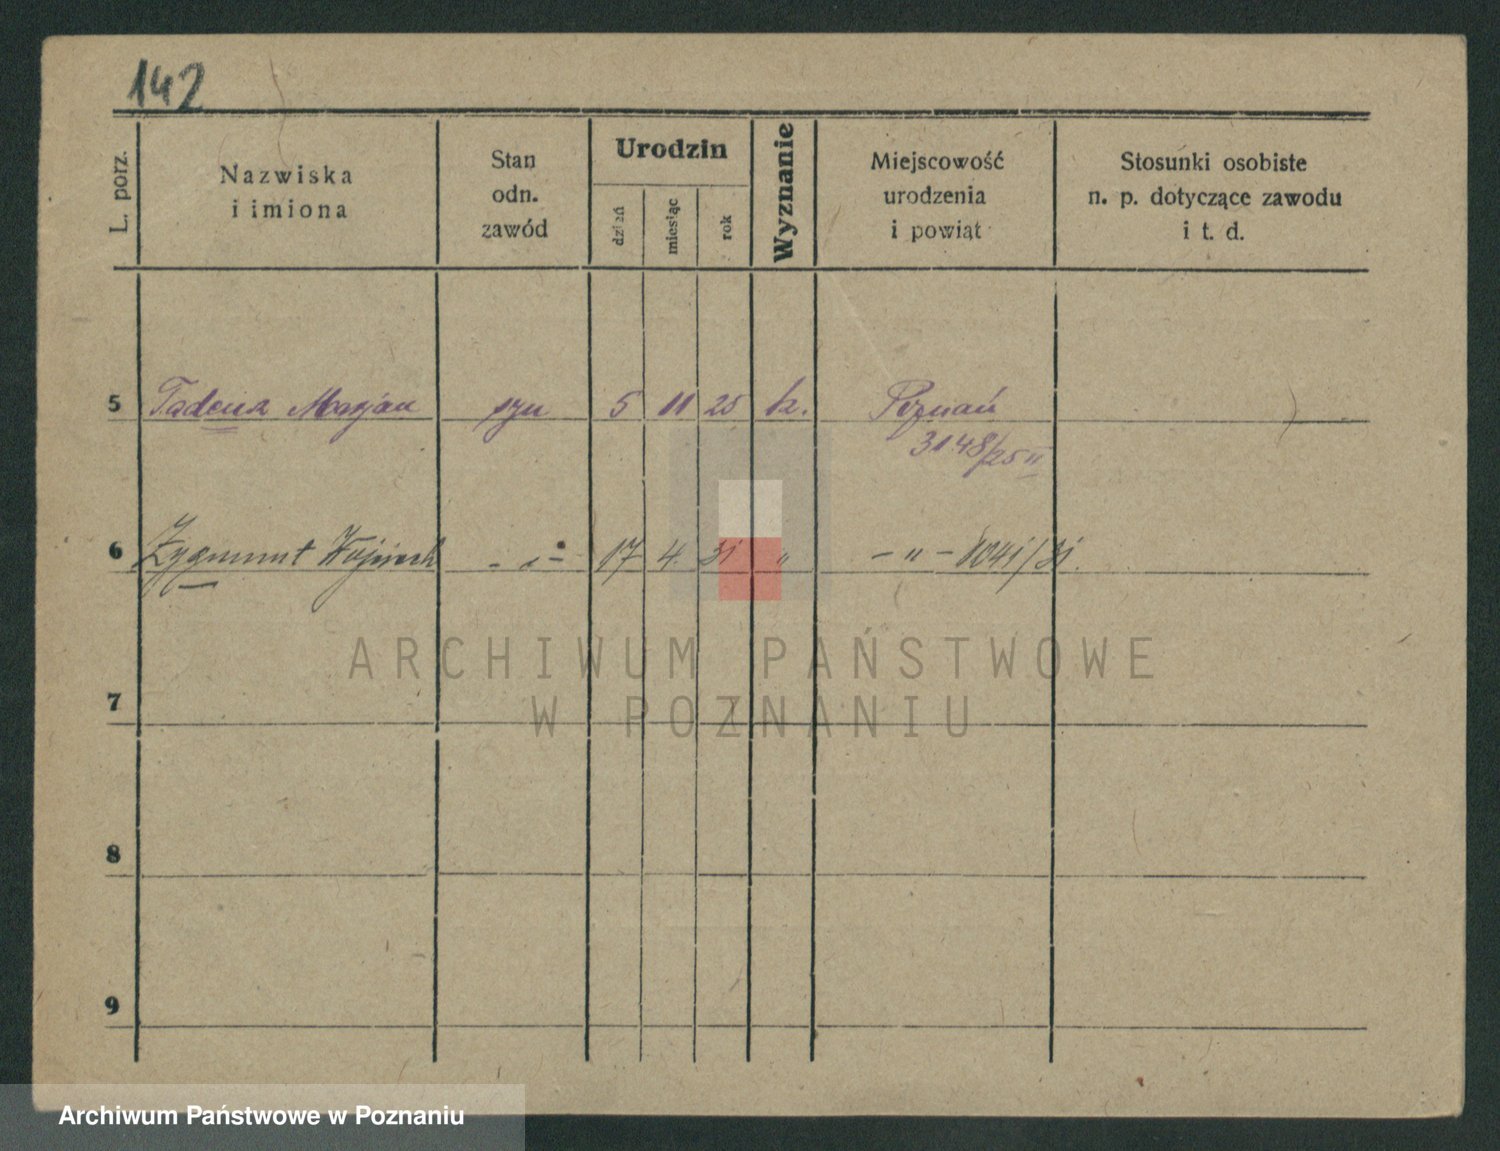 142
L. porz.
Nazwiska
i imiona
Stan
odn.
zawód
Urodzin
dzień
miesiąc
rok
Wyznanie
Miejscowość
urodzenia
i powiat
Stosunki osobiste
n. p. dotyczące zawodu
i t. d.
5 Tadeusz Marjan syn 5 11 25 k. Poznań
3148/25 II
6 Zygmunt Wojciech - „ - 17 4. 31 „ - „ - 1041/31.
7
8
9
ARCHIWUM PAŃSTWOWE
W POZNANIU
Archiwum Państwowe w Poznaniu